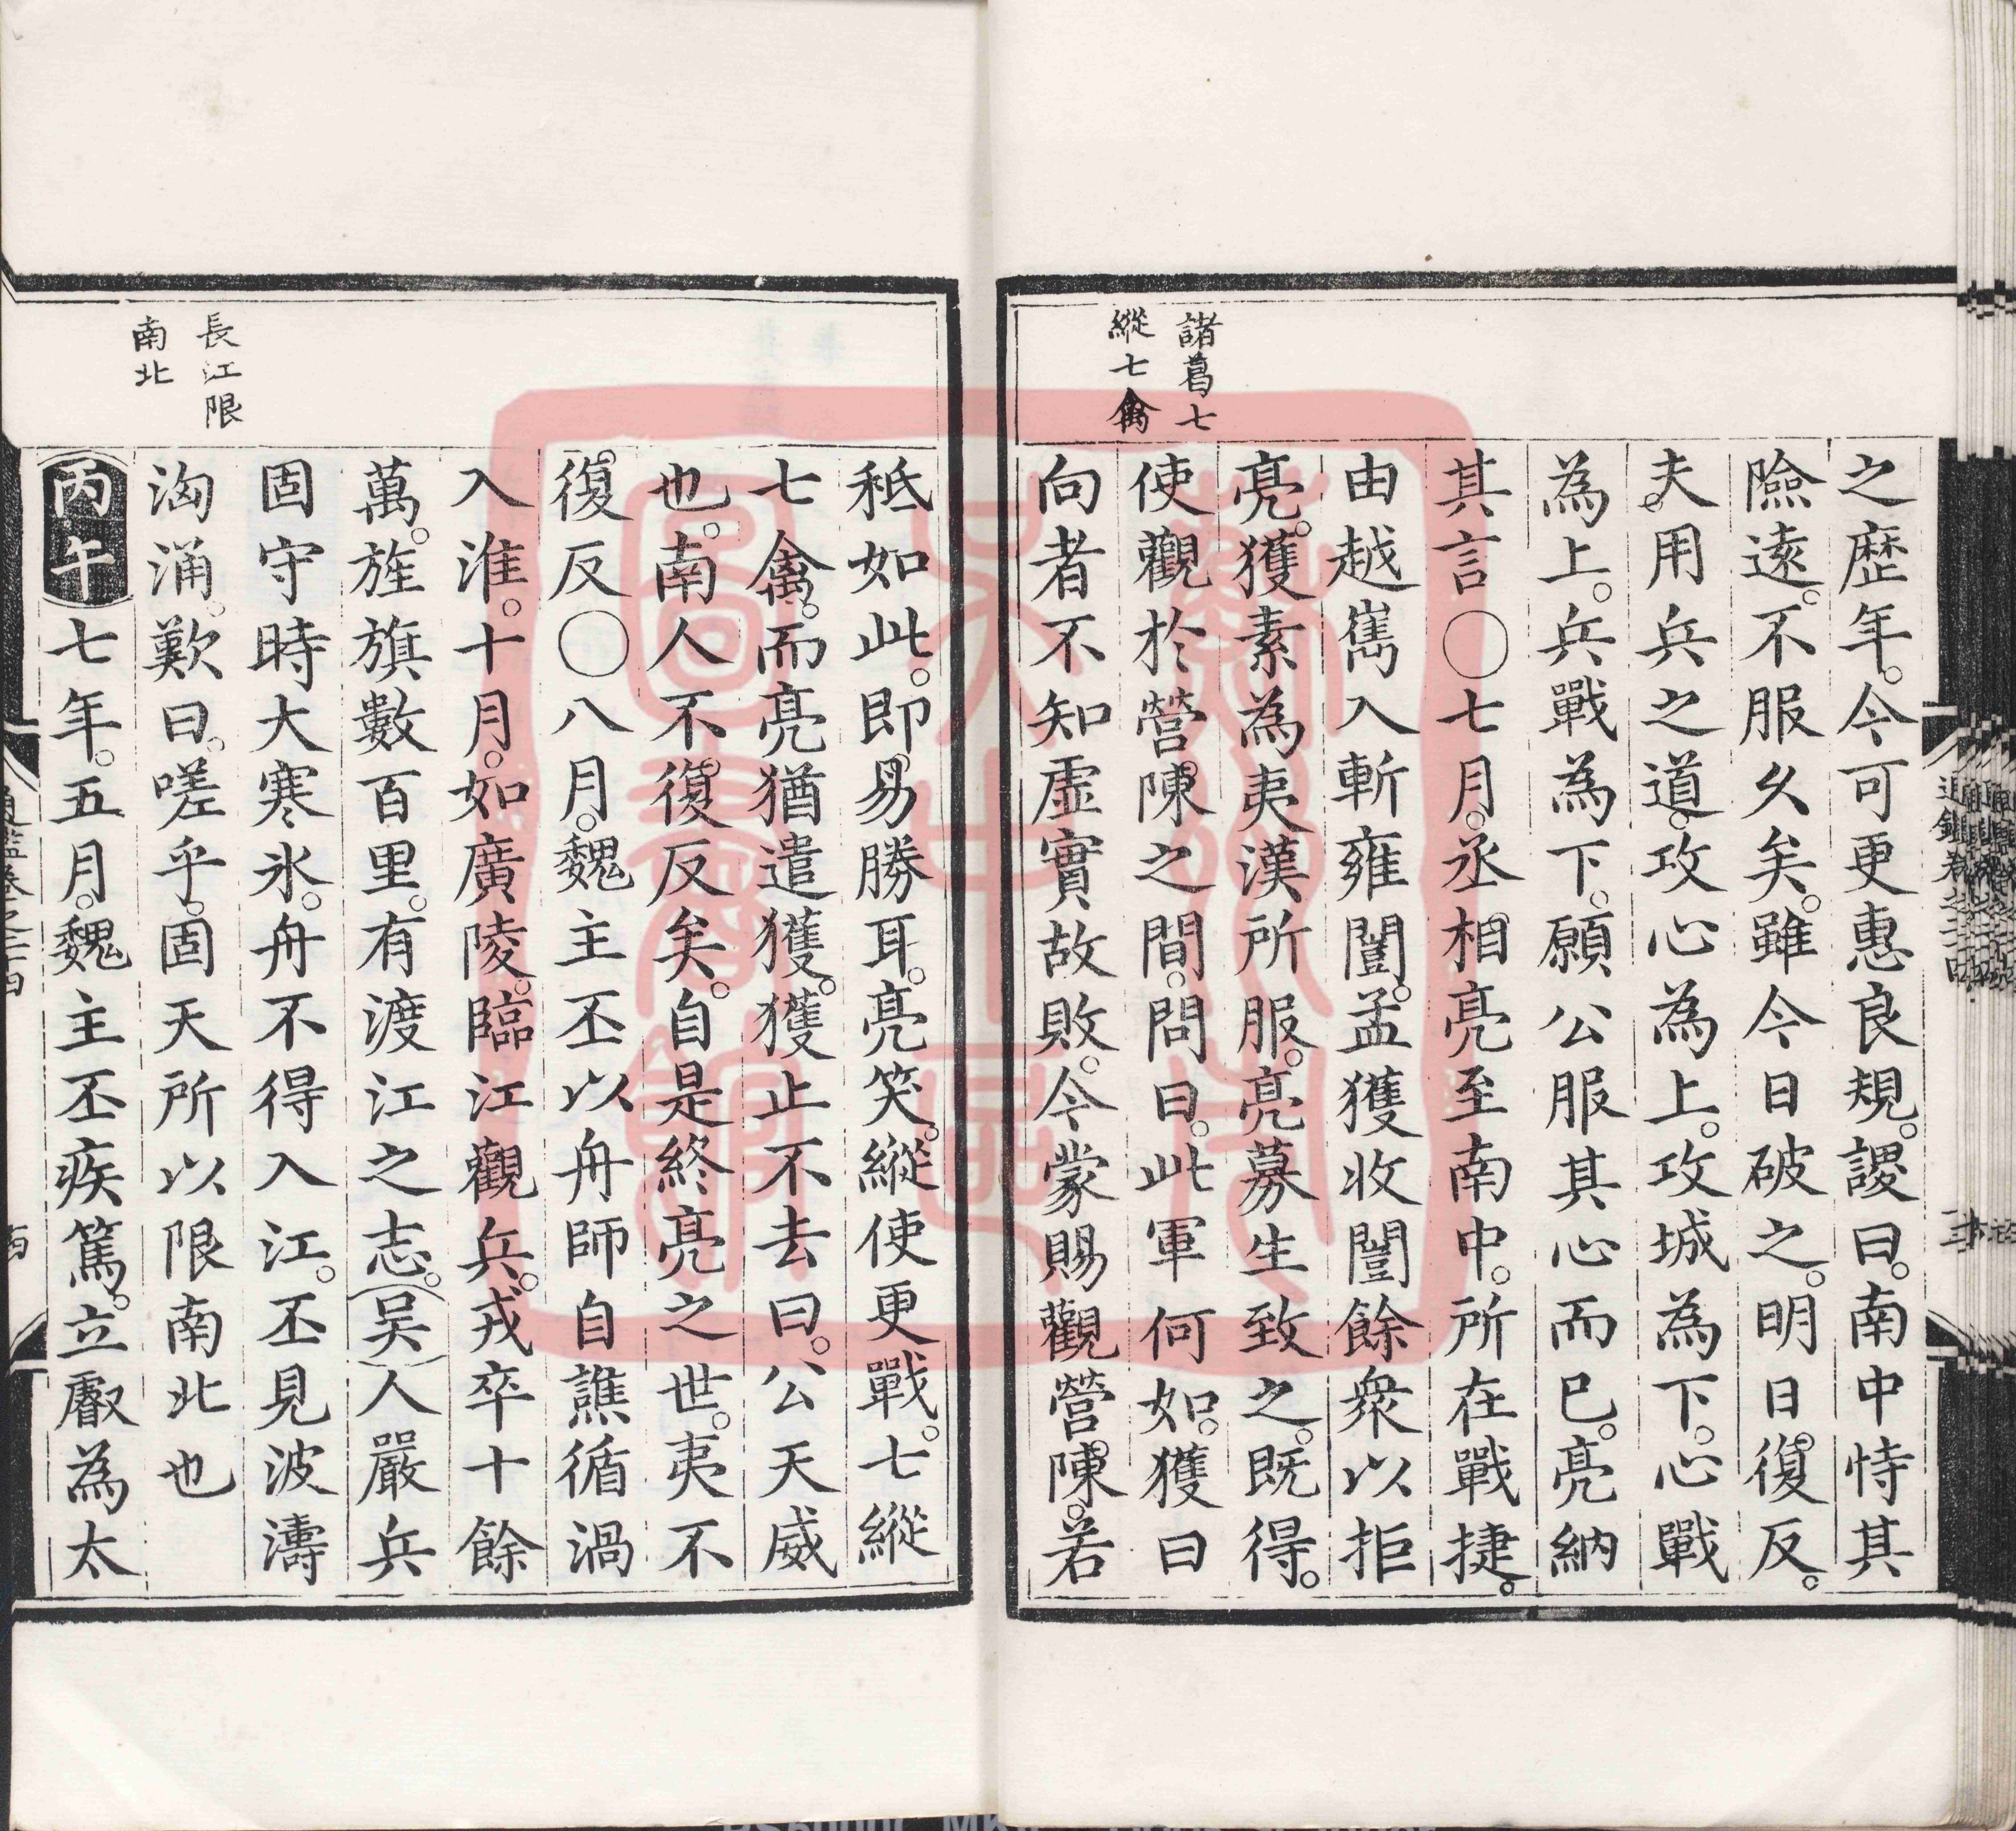 諸葛七
縱七禽
之歷年。今可更惠良規。謖曰。南中恃其
險遠。不服久矣。雖今日破之。明日復反。
夫用兵之道。攻心為上。攻城為下。心戰
為上。兵戰為下。願公服其心而已。亮納
其言〇七月。丞相亮至南中。所在戰捷。
由越嶲入斬雍闓。孟獲收闓餘衆以拒
亮。獲素為夷漢所服。亮募生致之。既得。
使觀於營陳之間。問曰。此軍何如。獲曰
向者不知虛實故敗。今蒙賜觀營陳。若
長江限
南北
秪如此。即易勝耳。亮笑。縱使更戰。七縱
七禽。而亮猶遣獲。獲止不去曰。公天威
也。南人不復反矣。自是終亮之世。夷不
復反〇八月。魏主丕以舟師自譙循渦
入淮。十月。如廣陵。臨江觀兵。戎卒十餘
萬。旌旗數百里。有渡江之志。吴人嚴兵
固守時大寒冰。舟不得入江。丕見波濤
洶涌。歎曰。嗟乎。固天所以限南北也
丙午七年。五月。魏主丕疾篤。立叡為太